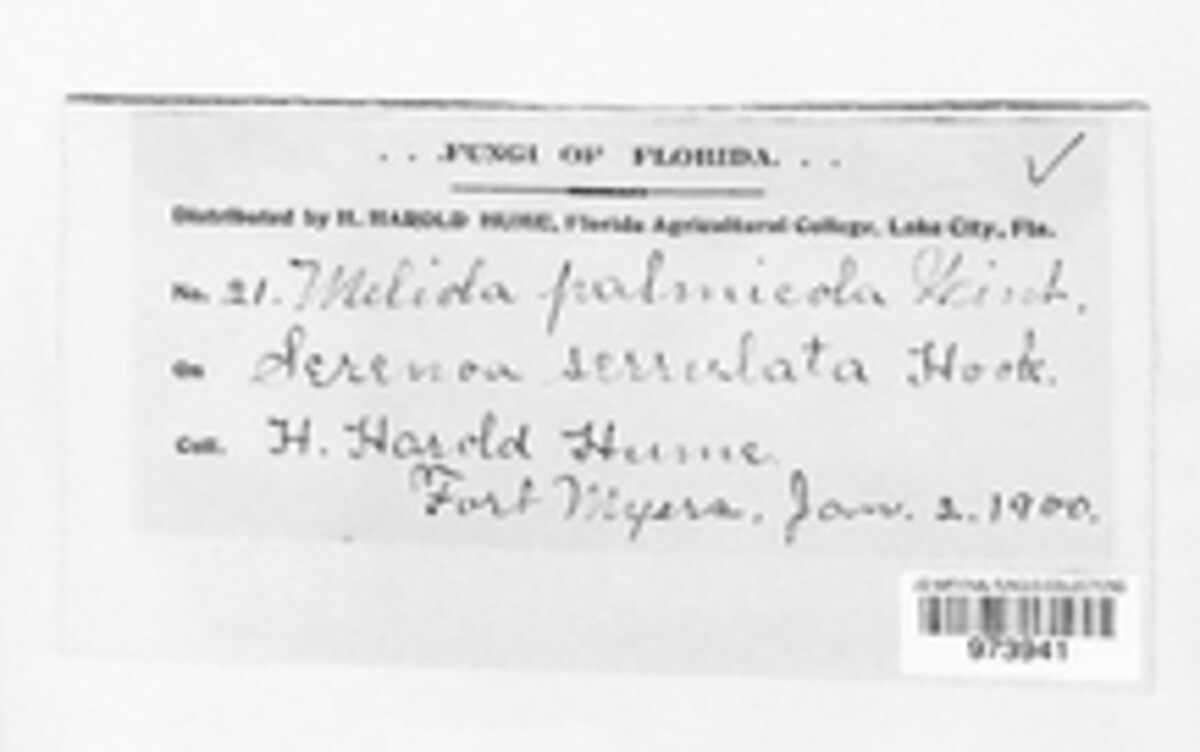 . . .FUNGI OF FLORIDA. . .
Distributed by H. HAROLD HUME, Florida Agricultural College, Lake City, Fla.
No. 21. Meliola palmicola Wint.
On Serenoa serrulata Hook.
Coll. H. Harold Hume.
Fort Myers, Jan. 2. 1900.
973941